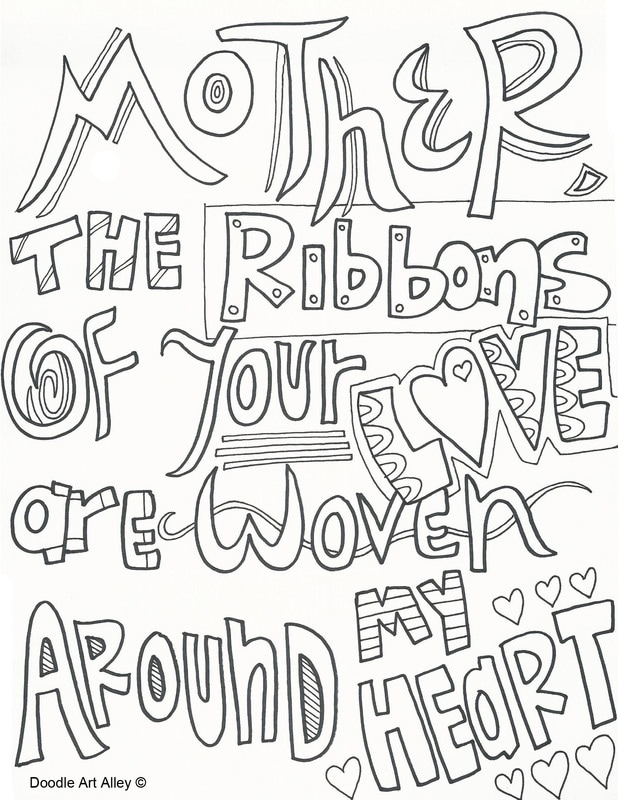 MOTHER,
THE Ribbons
OF your LOVE
are Woven
AROUND MY
HEART
Doodle Art Alley ©